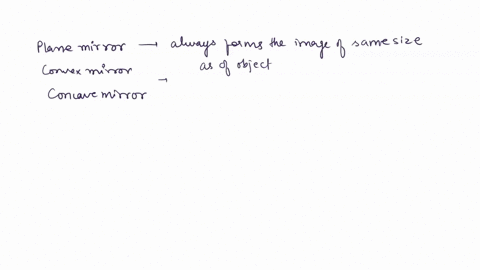 Plane mirror → always forms the image of same size
as of object
Convex mirror →
Concave mirror